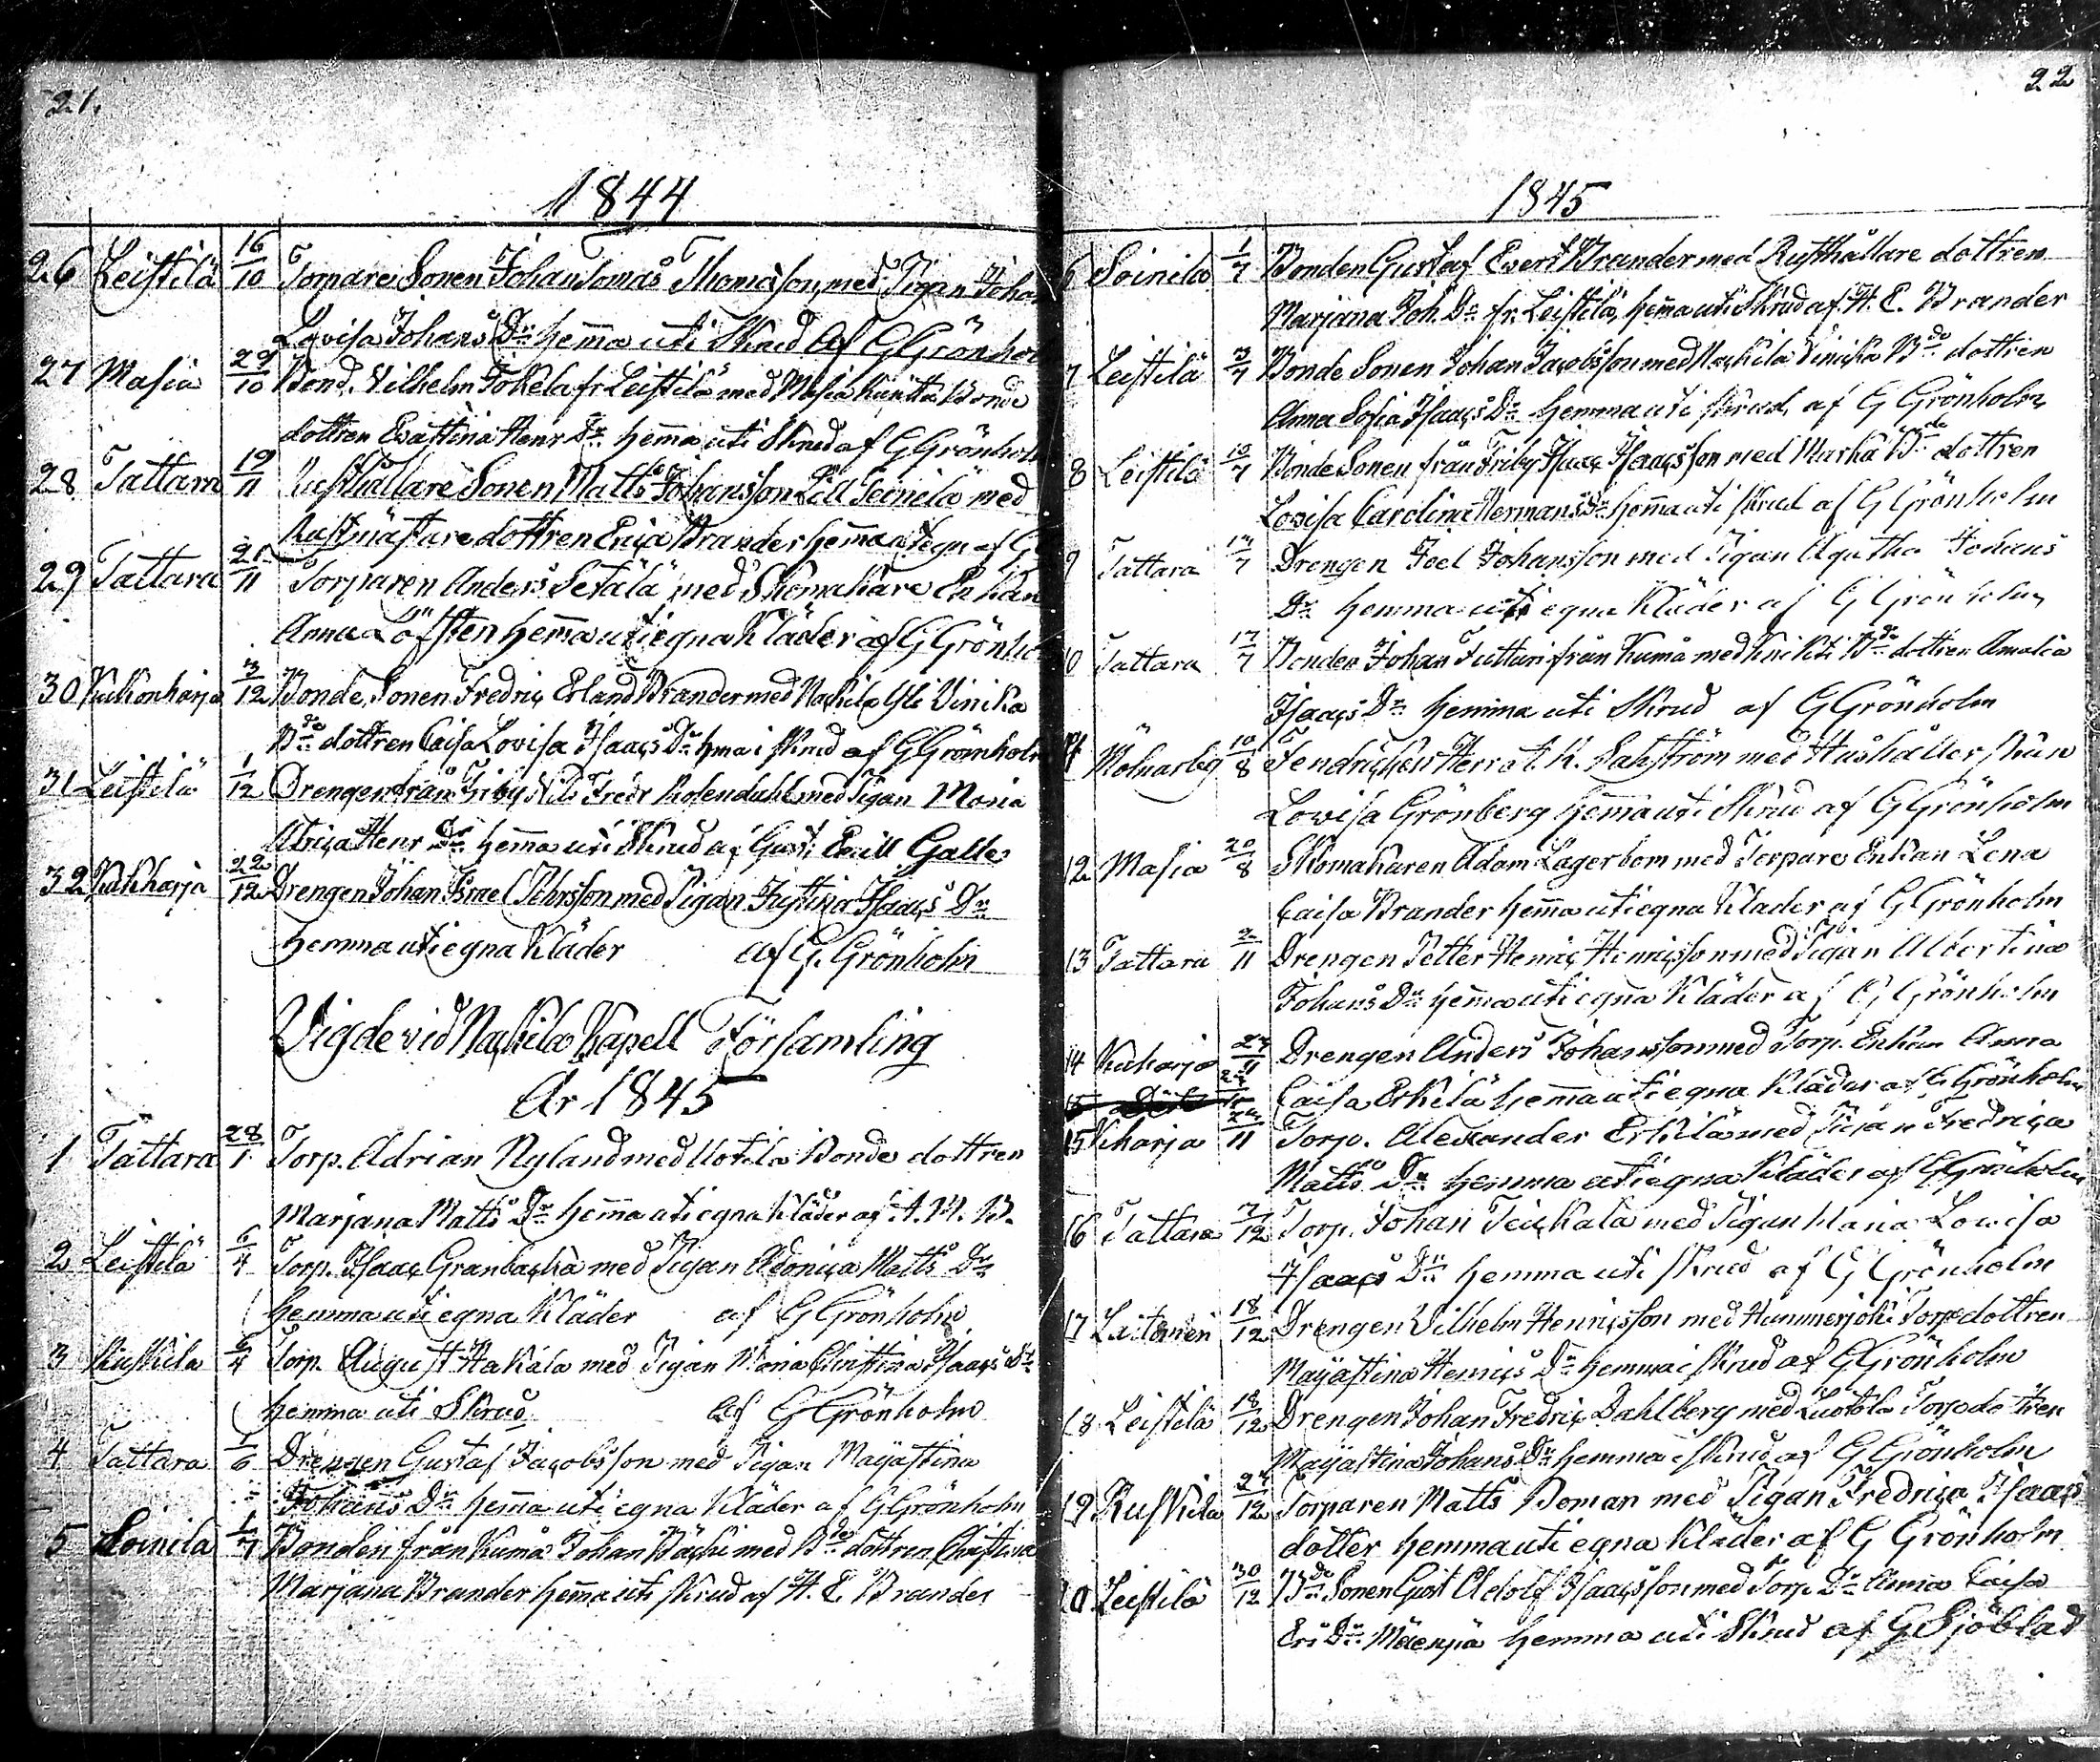 21.
1844
26 Leistilä 16/10 Torpare Sonen Johan Tomas Thomasson, med Pigan Johan
Lovisa Johans Dr hem̄a uti Skrud Af G Grönhol
27 Masia 29/10 Bond. Vilhelm Tokela fr Leistilä med Masia Bonde
dottren Evastina Henr Dr hem̄a uti Skrud af G Grönholm
28 Tattara 19/11 Rusthållare Sonen Matts Johansson Lill Teinilä med
Rustmästare dottren Erica Brander hem̄a af G
29 Tattara 21/11 Torparen Anders Setälä med Skomakare Enkan
Anna Löfsten hem̄a uti egna Kläder af G Grönho
30 Kukonharja 3/12 Bonde Sonen Fredric Erland Brander med Nackila Vinika
Bde dottren Caisa Lovisa Isaacs Dr hma i skrud af G Grönholm
31 Leistilä 1/12 Drengen från Friby Nils Fredr Rosendahl med Pigan Maria
Ulrica Henr Dr hem̄a uti Skrud af Gust. Galle
32 Kukharja 22/12 Drengen Johan Israel med Pigan Justina Isaacs Dr
hemma uti egna Kläder af G. Grönholm
Vigde vid Nackila Kapell Församling
År 1845
1 Tattara 28/1 Torp. Adrian Nyland med Bonde dottren
Marjana Matts Dr hem̄a uti egna kläder af
2 Leistilä 6/4 Torp. Isaac Granbacka med Pigan Adonica Matts Dr
hemma uti egna Kläder af G Grönholm
3 Ruskila 6/4 Torp August Hakala med Pigan Maria Christina Isaacs Dr
hemma uti Skrud af G Grönholm
4 Tattara 1/6 Drengen Gustaf Jacobsson med Pigan Majastina
Johans Dr hem̄a uti egna Kläder af G Grönholm
5 Soinila 1/7 Bonden från Kumå Johan Bäcki med Bde dottren Christina
Marjana Brander hem̄a uti skrud af H. E. Brander
22
1845
6 Soinila 1/7 Bonden Gustaf Evert Brander med Rusthållare dottren
Marjana Joh. Dr fr. Leistilä, hem̄a uti Skrud af H. E. Brander
7 Leistilä 3/7 Bonde Sonen Johan Jacobsson med Nackila Vinika Bde dottren
Anna Sofia Isaacs Dr hemma uti skrud, af G Grönholm
8 Leistilä 10/7 Bonde Sonen från Friby Isaac Isaacsson med Bde dottren
Lovisa Carolina Hermans Dr hem̄a uti skrud af G Grönholm
9 Tattara 13/7 Drengen Joel Johansson med Pigan Agatha Johans
Dr hemma uti egna Kläder af G Grönholm
10 Tattara 17/7 Bonden Johan Juttari från Kumå med Bde dottren Amalia
Isaacs Dr hemma uti Skrud af G Grönholm
11 10/8 Fendricken Herr A. K. Sahlström med Hushållerskan
Lovisa Grönberg hem̄a uti Skrud af G Grönholm
12 Masia 20/8 Skomakaren Adam Lagerbom med Torpare Enkan Lena
Caisa Brander hem̄a uti egna Kläder af G Grönholm
13 Tattara 2/11 Drengen Petter Henric Henricsson med Pigan Albertina
Johans Dr hem̄a uti egna Kläder af G Grönholm
14 Kukarja 27/11 Drengen Anders Johansson med Torp. Enkan Anna
Caisa Erkilä hem̄a uti egna Kläder af G Grönholm
15 Kharja 11 Torp. Alexander Erkilä med Pigan Fredrica
Matts Dr hemma uti egna Kläder af G Grönholm
16 Tattara 7/12 Torp. Johan Teickala med Pigan Maria Lovisa
Isaacs Dr hemma uti skrud af G Grönholm
17 Laitomeri 18/12 Drengen Vilhelm Henricsson med Hammarjoki Torp dottren
Majastina Henrics Dr hemma i skrud af G Grönholm
18 Leistilä 18/12 Drengen Johan Fredric Dahlberg med Luotola Torp dottren
Majastina Johans Dr hemma i skrud af G Grönholm
19 Ruskila 27/12 Torparen Matts Boman med Pigan Fredrica Isaacs
dotter hemma uti egna Kläder af G Grönholm
20 Leistilä 30/12 Bde Sonen Gust Adolf Isaacsson med Torp. Dr Anna Caisa
Ers Dr hemma uti Skrud af G. Sjöblad